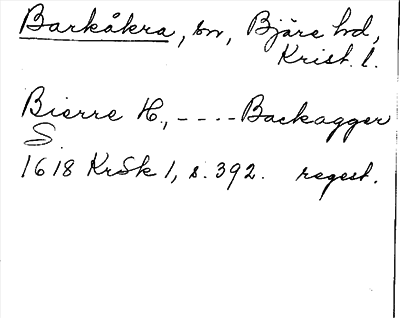 Barkåkra, sn, Bjäre hd,
Krist. l.
Bierre H., ---- Backagger
S.
1618 KrSk 1, s. 392. regest.